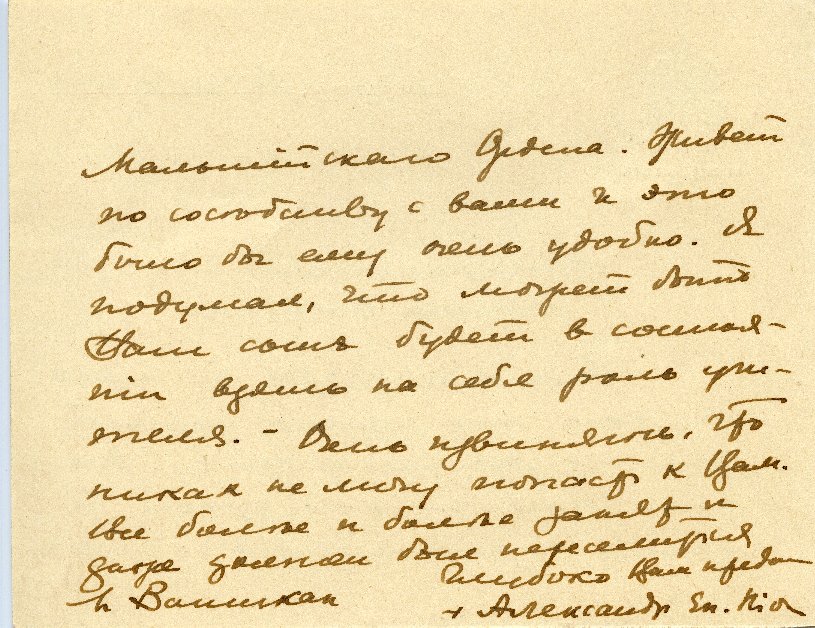 Мальтийскаго Ордена. Живет
по соседству с вами и это
было бы ему очень удобно. Я
подумал, что может быть
Ваш сынъ будет в состоя-
нiи взять на себя роль учи-
теля. - Очень извиняюсь, что
никак не могу попасть к Вам.
Все более и более занят и
даже должен был переселиться
в Ватикан Глубоко Вам предан
+ Александр Еп.